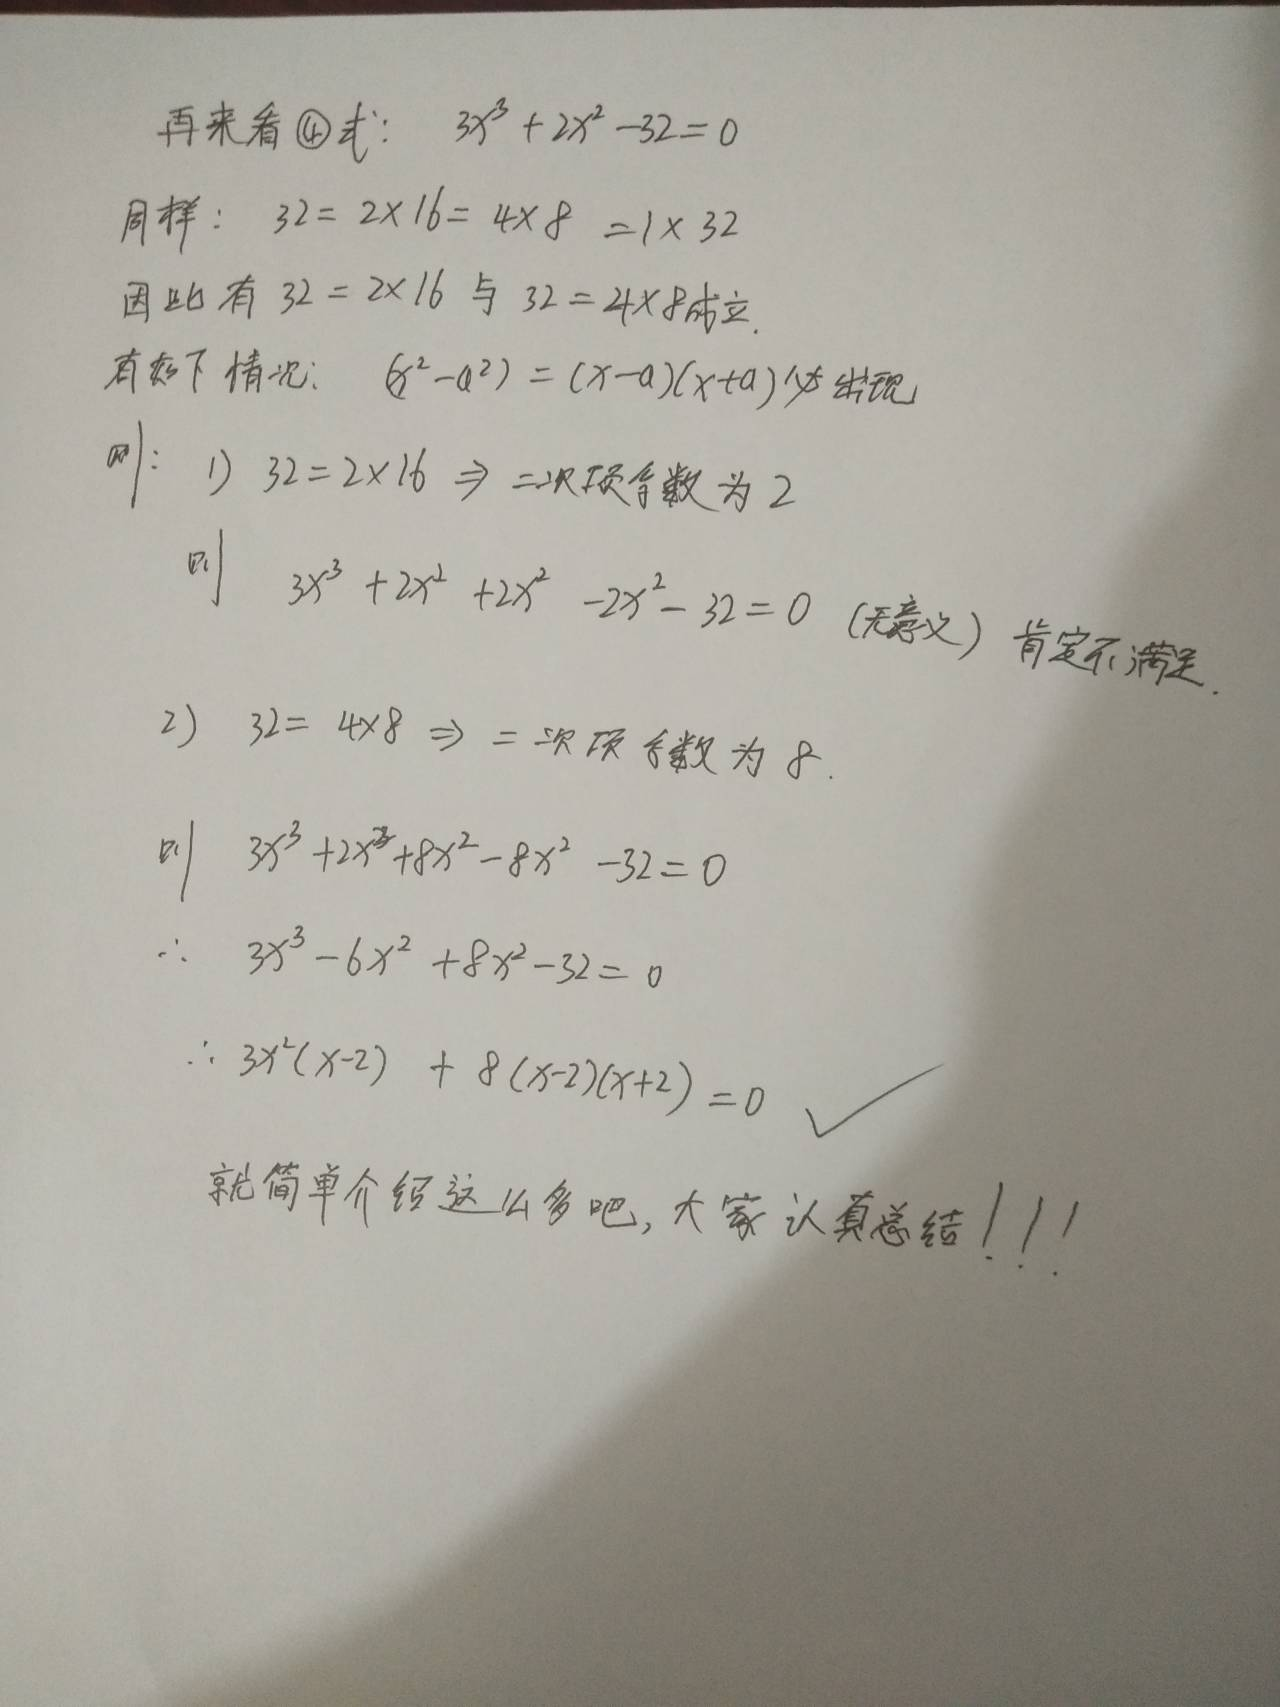 再来看④式: 3x³+2x²-32=0
同样: 32=2×16=4×8=1×32
因此有32=2×16与32=4×8成立.
有如下情况: (x²-a²)=(x-a)(x+a)必出现
则: 1) 32=2×16⇒二次项系数为2
则 3x³+2x²+2x²-2x²-32=0 (无意义) 肯定不满足.
2) 32=4×8⇒二次项系数为8.
则 3x³+2x²+8x²-8x²-32=0
∴ 3x³-6x²+8x²-32=0
∴ 3x²(x-2)+8(x-2)(x+2)=0 ✓
就简单介绍这么多吧,大家认真总结!!!